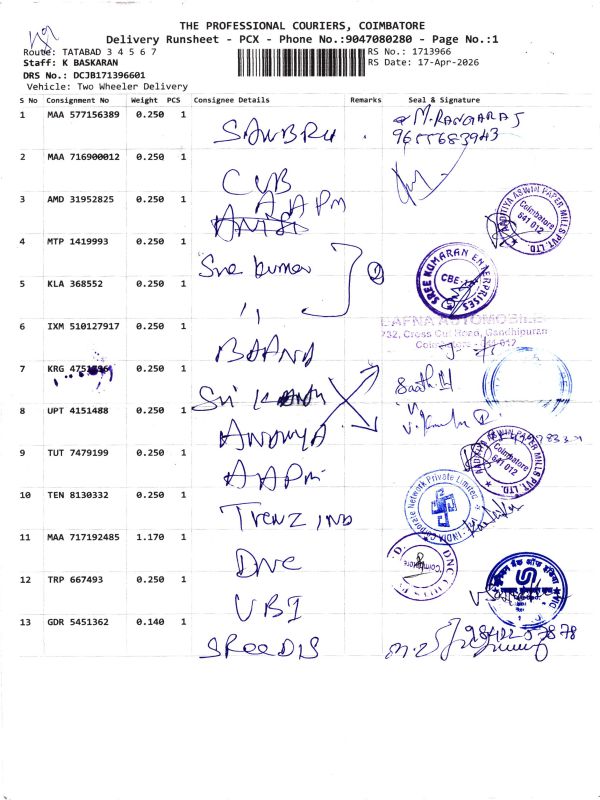 THE PROFESSIONAL COURIERS, COIMBATORE
Delivery Runsheet - PCX - Phone No.:9047080280 - Page No.:1
Route: TATABAD 3 4 5 6 7
RS No.: 1713966
Staff: K BASKARAN
RS Date: 17-Apr-2026
DRS No.: DCJB171396601
Vehicle: Two Wheeler Delivery
S No Consignment No Weight PCS Consignee Details Remarks Seal & Signature
1 MAA 577156389 0.250 1 M. RANGARAJ
2 MAA 716900012 0.250 1 CUB
3 AMD 31952825 0.250 1 AAPM
AADITIYA ASWIN PAPER MILLS PVT. LTD. Coimbatore 641 012
4 MTP 1419993 0.250 1 Sree kumar 2
SREE KUMARAN ENTERPRISES CBE-12
5 KLA 368552 0.250 1 "
6 IXM 510127917 0.250 1
732, Cross Cut Road, Gandhipuram
Coimbatore - 641 012
7 KRG 0.250 1 Sri
8 UPT 4151488 0.250 1 ANANYA
9 TUT 7479199 0.250 1 AAPM
AADITIYA ASWIN PAPER MILLS PVT. LTD. Coimbatore 641 012
10 TEN 8130332 0.250 1 Trenz IND
INDIA Corporate Network Private Limited
11 MAA 717192485 1.170 1 DNC
DNC Coimbatore
12 TRP 667493 0.250 1 UBI
13 GDR 5451362 0.140 1 SREEDIS